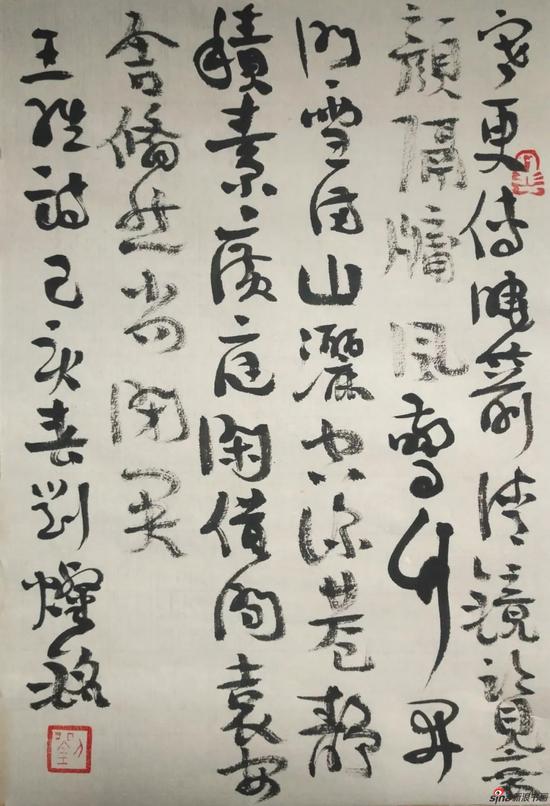 寒更傳曉箭清鏡覽衰
顏隔牖風驚竹開
門雪滿山灑空深巷靜
積素廣庭閑借問袁安
舍翛然尚閉關
王維詩己亥春劉燦銘
sina新浪书画